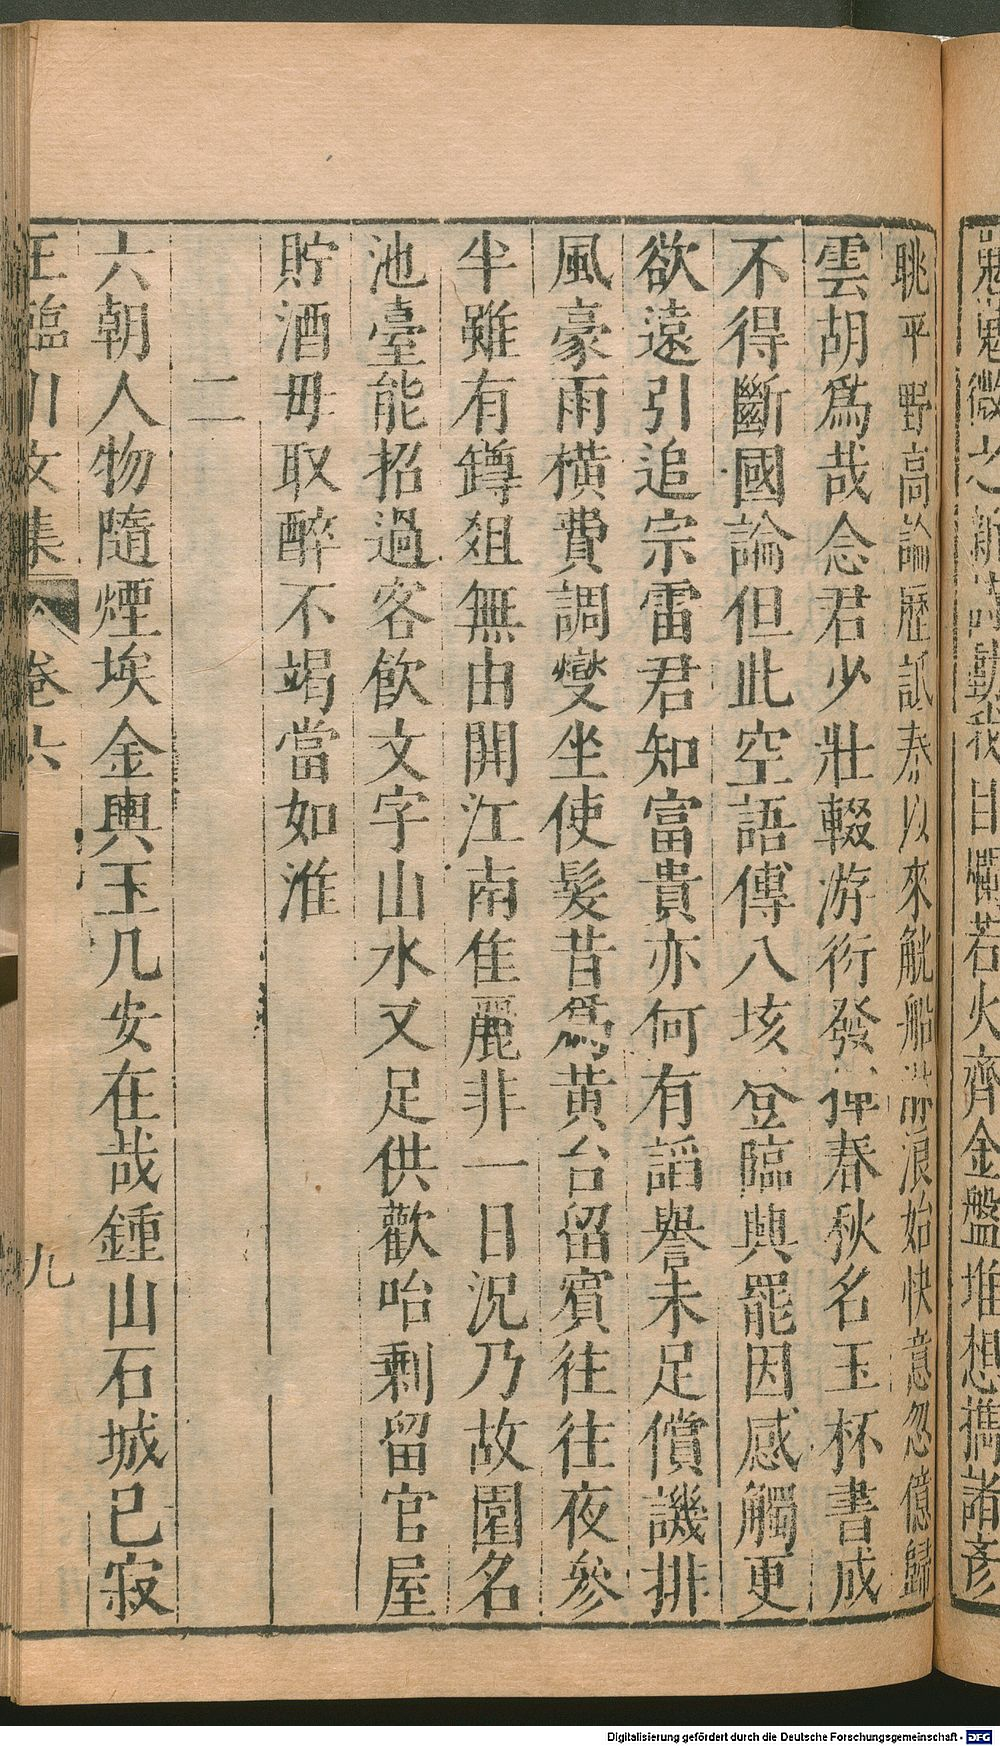 嵬微之新詩動我目爛若火齊金盤堆想攜諸彥
眺平野高論歷詆秦以來觥船淋浪始快意忽億歸
雲胡爲哉念君少壯輟游衍發揮春秋名玉杯書成
不得斷國論但此空語傳八垓登臨興罷因感觸更
欲遠引追宗雷君知富貴亦何有謟譽未足償譏排
風豪雨橫費調燮坐使髮昔爲黃台留賓往往夜參
半雖有罇爼無由開江南佳麗非一日況乃故園名
池臺能招過客飲文字山水又足供歡咍剩留官屋
貯酒毋取醉不竭當如淮
二
六朝人物隨煙埃金輿玉几安在哉鍾山石城已寂
王臨川文集 卷六 九
Digitalisierung gefördert durch die Deutsche Forschungsgemeinschaft - DFG